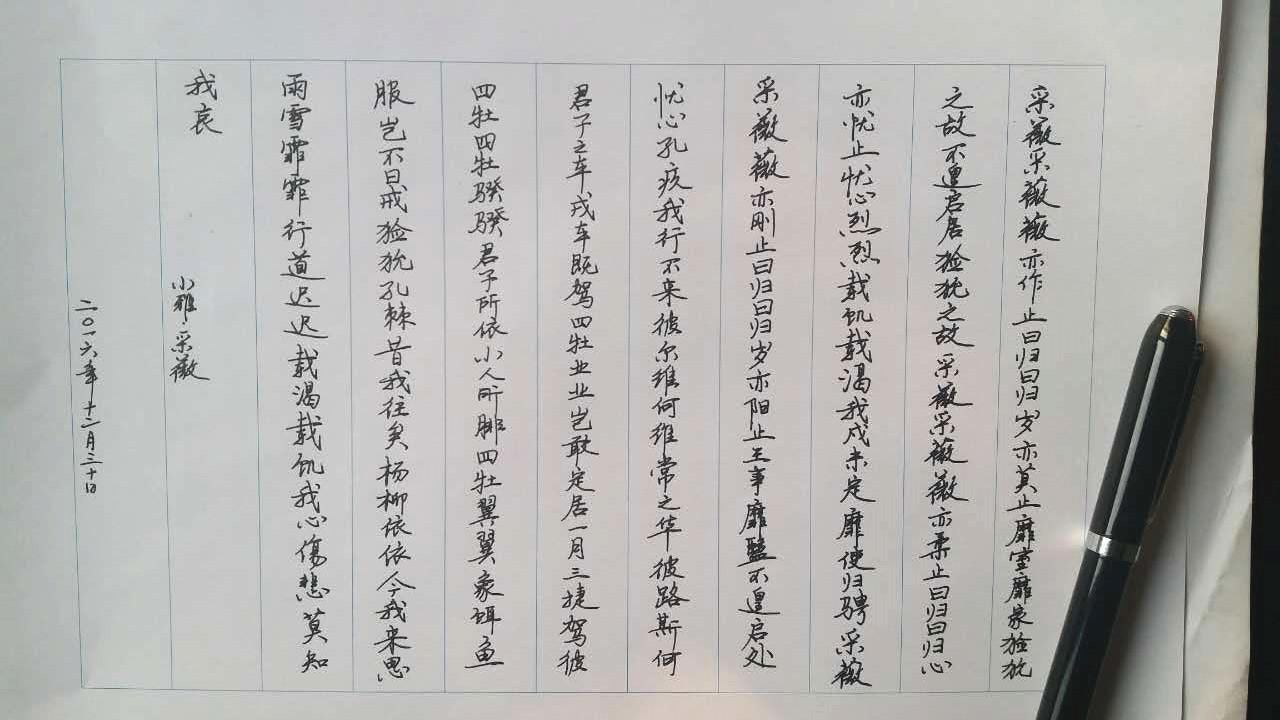 采薇采薇薇亦作止曰归曰归岁亦莫止靡室靡家猃狁
之故不遑启居猃狁之故采薇采薇薇亦柔止曰归曰归心
亦忧止忧心烈烈载饥载渴我戍未定靡使归聘采薇
采薇薇亦刚止曰归曰归岁亦阳止王事靡盬不遑启处
忧心孔疚我行不来彼尔维何维常之华彼路斯何
君子之车戎车既驾四牡业业岂敢定居一月三捷驾彼
四牡四牡骙骙君子所依小人所腓四牡翼翼象弭鱼
服岂不日戒猃狁孔棘昔我往矣杨柳依依今我来思
雨雪霏霏行道迟迟载渴载饥我心傷悲莫知
我哀
小雅·采薇
二〇一六年十二月三十日